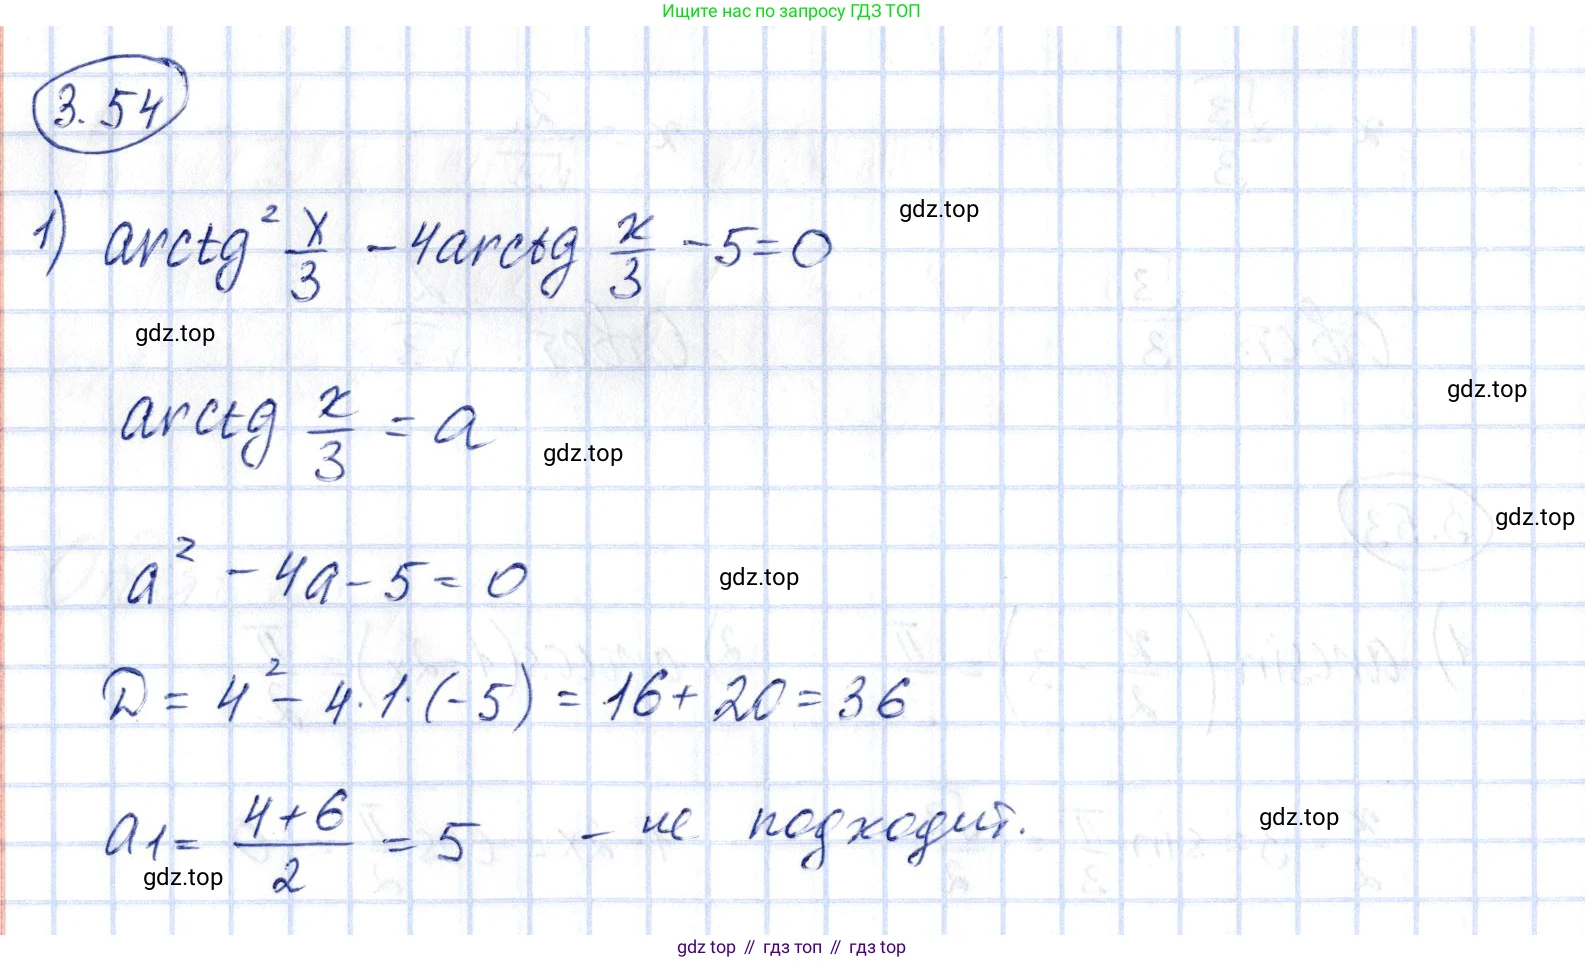 Ищите нас по запросу ГДЗ ТОП
3.54
1) arctg² x/3 - 4arctg x/3 - 5 = 0
gdz.top
gdz.top
arctg x/3 = a
gdz.top
gdz.top
gdz.top
a² - 4a - 5 = 0
gdz.top
D = 4² - 4·1·(-5) = 16 + 20 = 36
a1 = (4+6)/2 = 5 - не подходит.
gdz.top
gdz.top
gdz top // гдз топ // gdz top